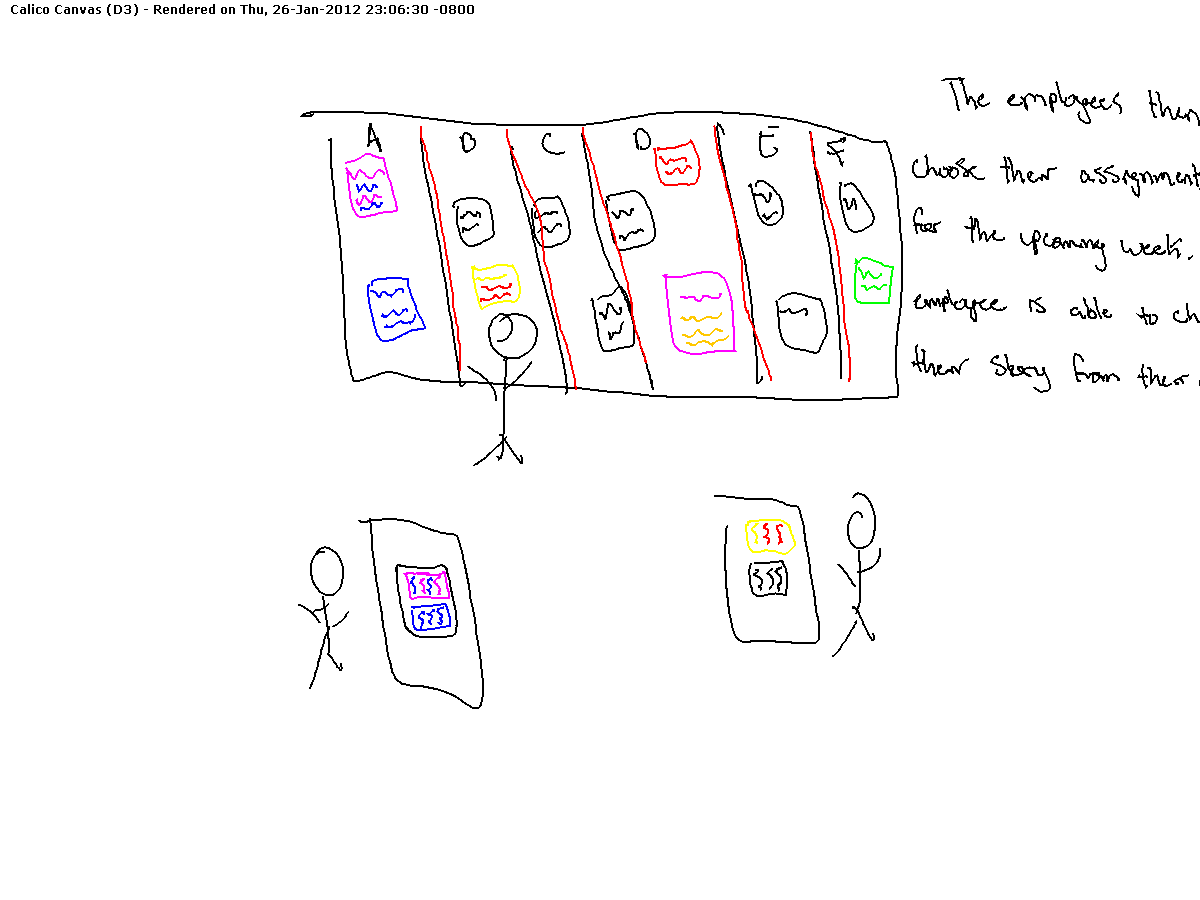 Calico Canvas (D3) - Rendered on Thu, 26-Jan-2012 23:06:30 -0800
The employees then
A B C D E F
choose their assignment
for the upcoming week.
employee is able to ch
their story from their